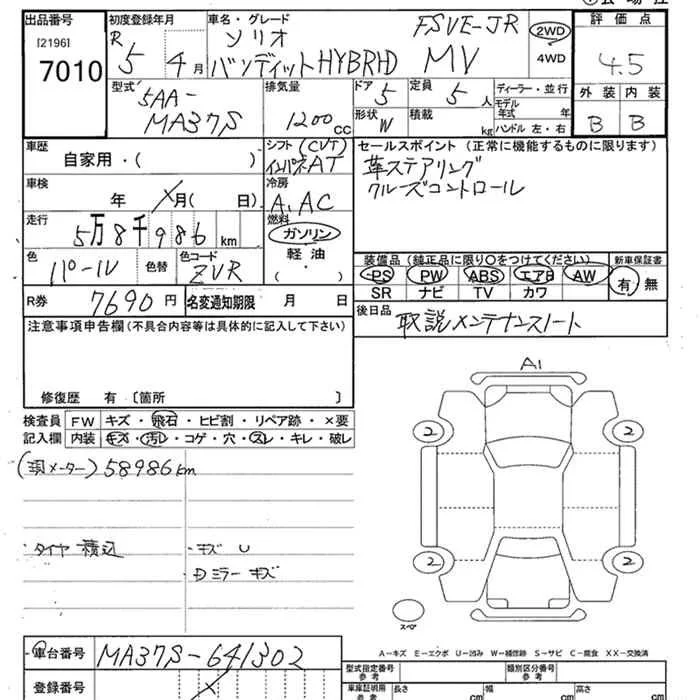 出品番号 初度登録年月 車名・グレード 評価点
[2196]
7010
R 5 4月 ソリオ FSVE-JR 2WD 4.5
バンディットHYBRID MV 4WD
型式 排気量 ドア 定員 ディーラー・並行 外装 内装
5AA- 5 5人 モデル年式 年
MA37S 1200cc 形状 W 積載 kg ハンドル 左・右 B B
車歴 シフト (CVT) セールスポイント (正常に機能するものに限ります)
自家用・( ) インパネAT 革ステアリング
車検 冷房 クルーズコントロール
年 月( 日) A,AC
走行 燃料
5万8千986km ガソリン
色 色替 色コード 軽油 装備品 (純正品に限り○をつけてください) 新車保証書
パール ZVR ( ) PS PW ABS エアB AW 有・無
SR ナビ TV カワ
R券 7690円 名変通知期限 月 日 後日品 取説メンテナンスノート
注意事項申告欄(不具合内容等は具体的に記入して下さい)
修復歴 有 〔箇所 〕
A1
検査員 FW キズ・飛石・ヒビ割・リペア跡・×要
記入欄 内装 キズ・汚レ・コゲ・穴・スレ・キレ・破レ
2 2
(現メーター) 58986km
・タイヤ積込 ・キズ U
・Dミラーキズ
2 2
スペア
A-キズ E-エクボ U-凹み W-補修跡 S-サビ C-腐食 XX-交換済
車台番号 MA37S-641302
登録番号
型式指定番号 参考 類別区分番号 参考
車庫証明用 参考 長さ cm 幅 cm 高さ cm